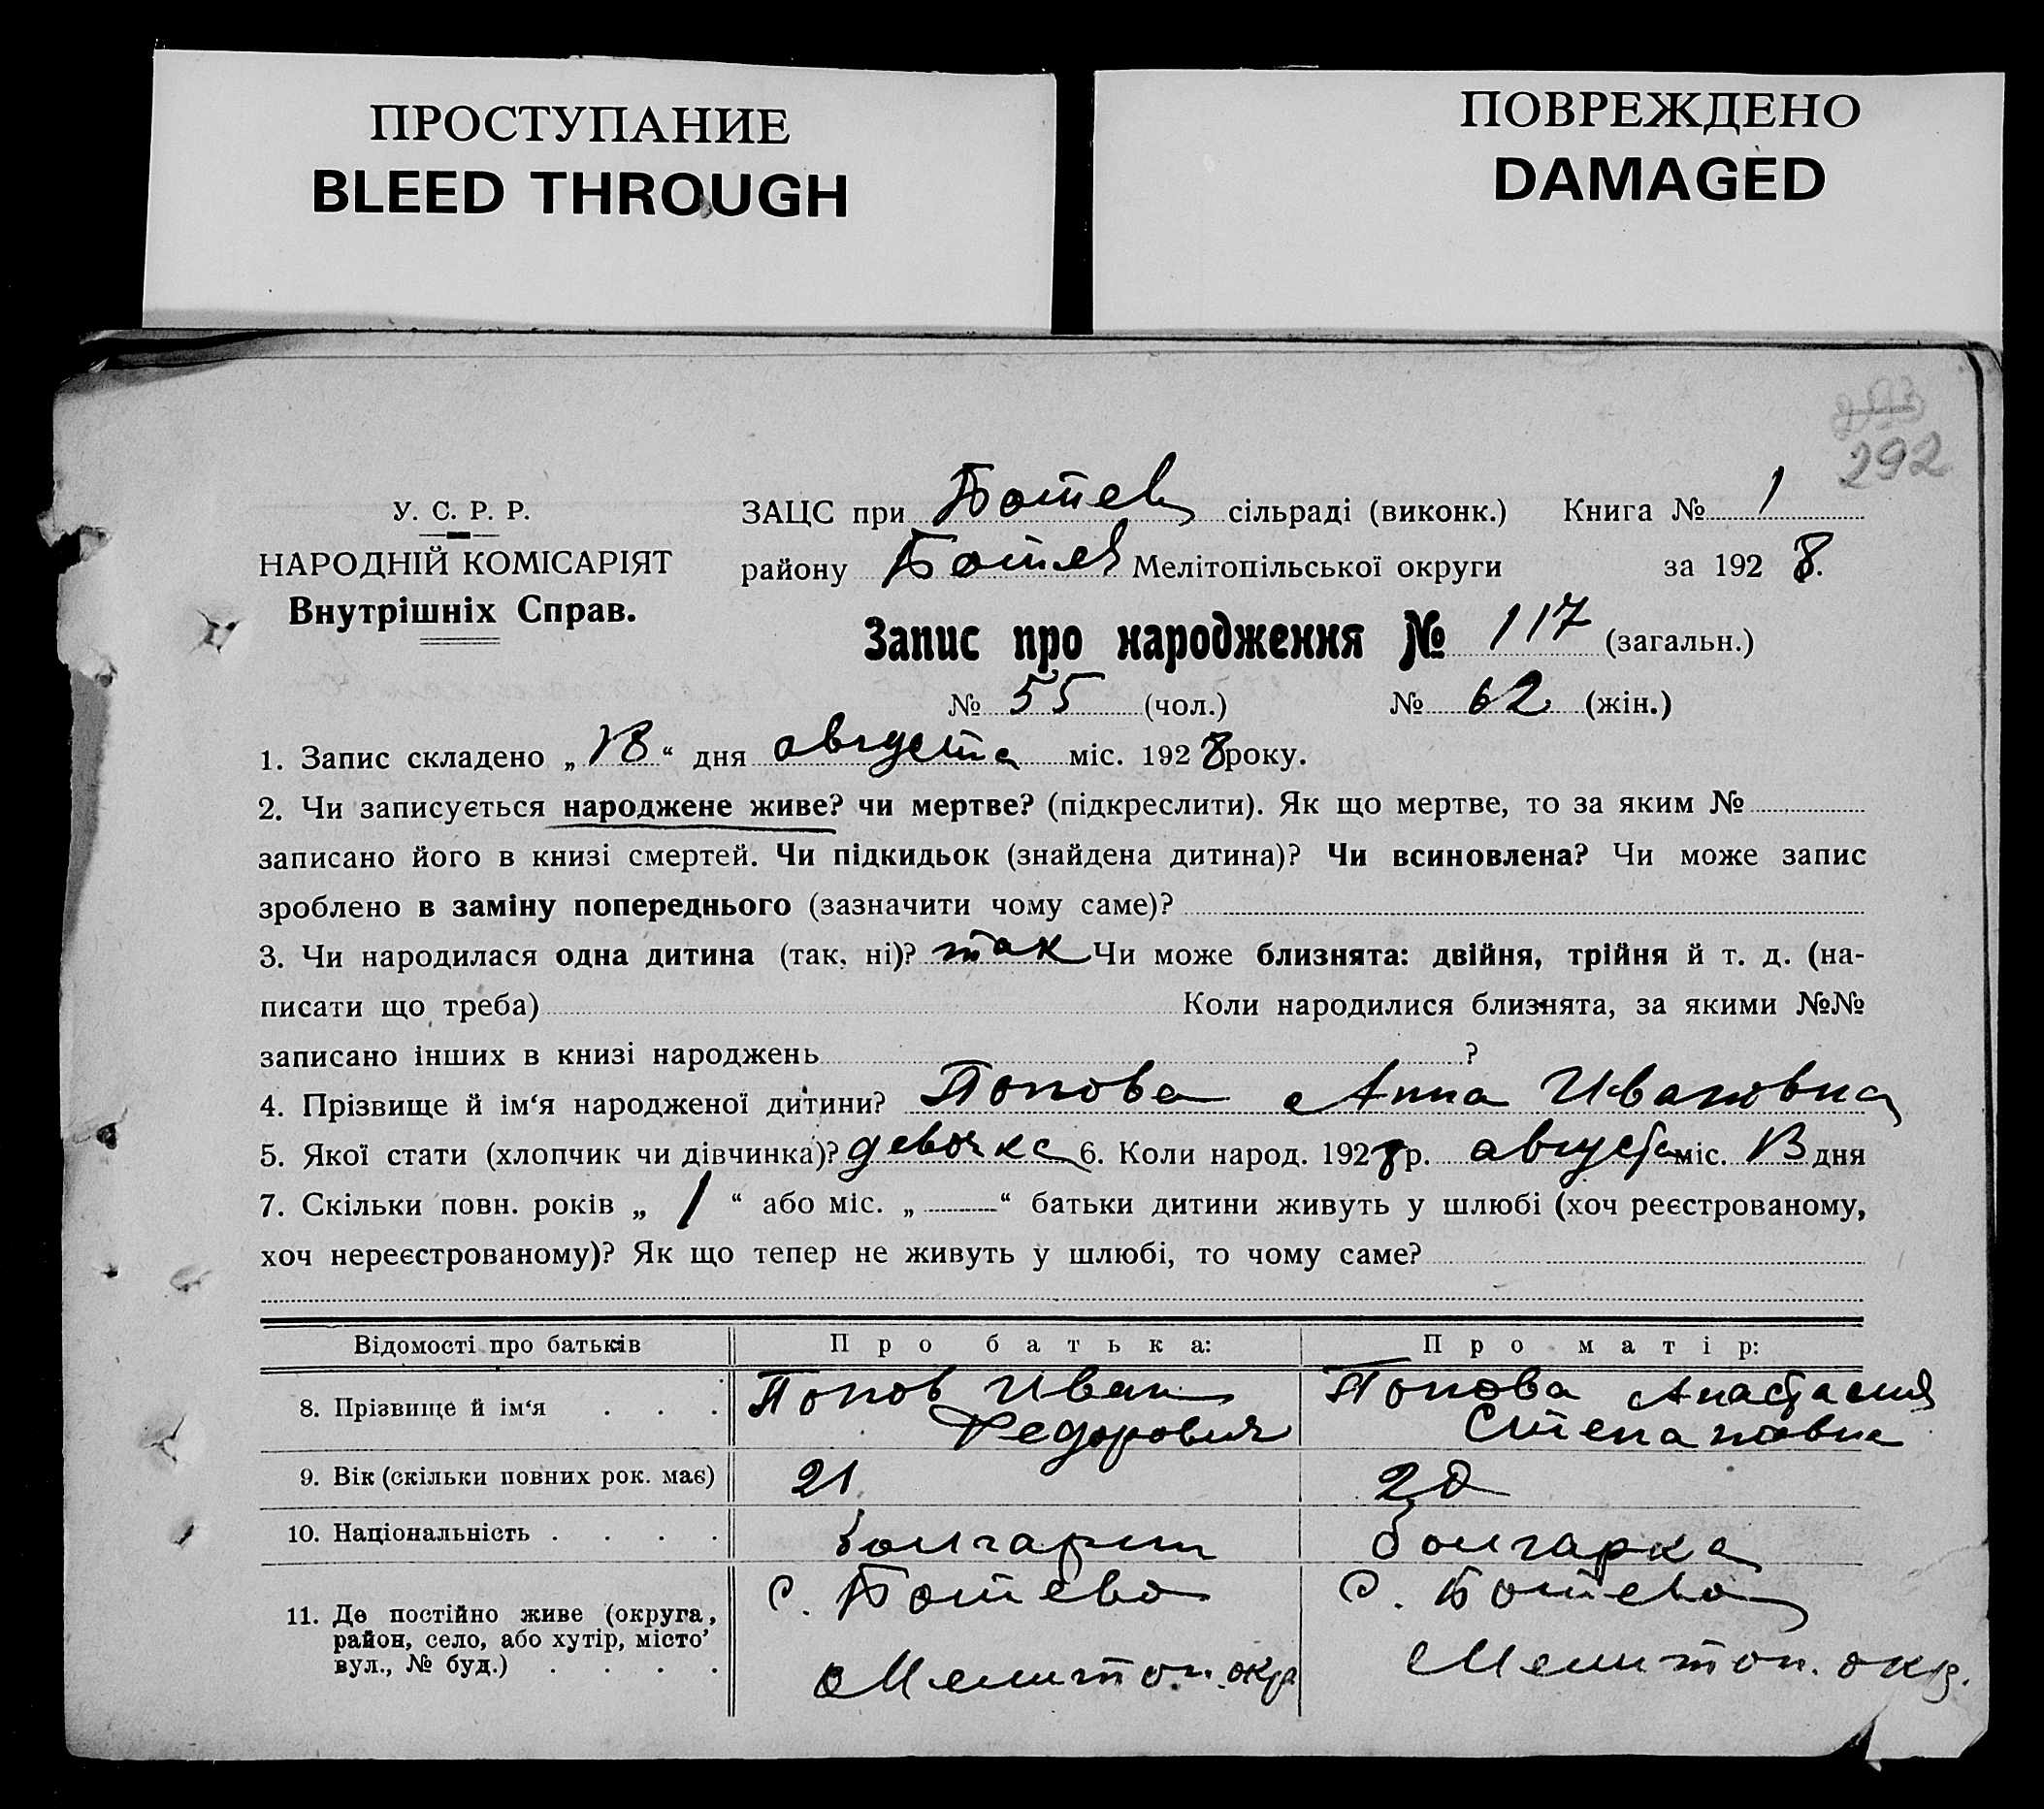 ПРОСТУПАНИЕ
BLEED THROUGH
ПОВРЕЖДЕНО
DAMAGED
292
У. С. Р. Р.
НАРОДНІЙ КОМІСАРІЯТ
Внутрішніх Справ.
ЗАЦС при Ботев сільраді (виконк.) Книга № 1
району Ботев Мелітопільської округи за 1928.
Запис про народження № 117 (загальн.)
№ 55 (чол.) № 62 (жін.)
1. Запис складено „18“ дня августа міс. 1928 року.
2. Чи записується народжене живе? чи мертве? (підкреслити). Як що мертве, то за яким №
записано його в книзі смертей. Чи підкидьок (знайдена дитина)? Чи всиновлена? Чи може запис
зроблено в заміну попереднього (зазначити чому саме)?
3. Чи народилася одна дитина (так, ні)? так Чи може близнята: двійня, трійня й т. д. (на-
писати що треба) Коли народилися близнята, за якими №№
записано інших в книзі народжень ?
4. Прізвище й ім‘я народженої дитини? Попова Анна Ивановна
5. Якої стати (хлопчик чи дівчинка)? девочка 6. Коли народ. 1928 р. августа міс. 13 дня
7. Скільки повн. років „ 1 “ або міс. „ “ батьки дитини живуть у шлюбі (хоч реєстрованому,
хоч нереєстрованому)? Як що тепер не живуть у шлюбі, то чому саме?
Відомості про батьків Про батька: Про матір:
8. Прізвище й ім‘я . . . Попов Иван Попова Анастасия
Федорович Степановна
9. Вік (скільки повних рок. має) 21 20
10. Національність . . . . болгарин болгарка
11. Де постійно живе (округа, с. Ботево с. Ботево
район, село, або хутір, місто’
вул., № буд.) . . . . Мелитоп. окр Мелитоп. окр.